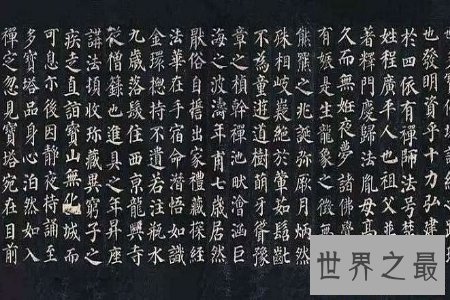 也發明資乎十力弘建
於四依有禪師法号楚
姓程廣平人也祖父並
著釋門慶歸法胤母高
久而無妊夜夢諸佛
有娠是生龍象之徵無
熊羆之兆誕弥厥月炳然
殊相岐嶷絕於葷茹髫齔
不為童遊道樹萌牙聳豫
章之楨幹禪池畎澮涵巨
海之波濤年甫七歲居然
厭俗自誓出家禮藏探經
法華在手宿命潛悟如識
金環揔持不遺若注瓶水
九歲落髮住西京龍興寺
從僧籙也進具之年昇座
講法頓收珍藏異窮子之
疾走直詣寶山無化城而
可息尒後因靜夜持誦至
多寶塔品身心泊然如入
禪定忽見寶塔宛在目前
世界之最